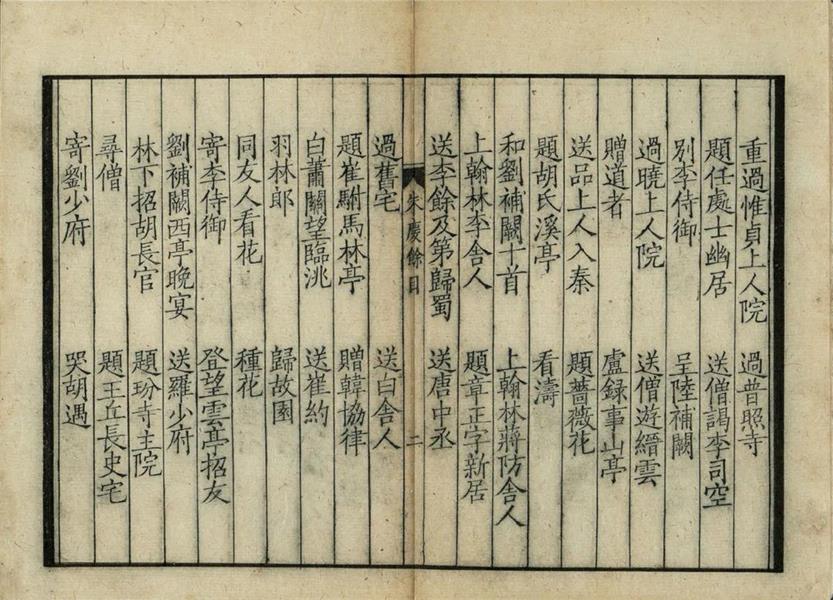 重過惟貞上人院　過普照寺
題任處士幽居　送僧謁李司空
別李侍御　呈陸補闕
過曉上人院　送僧遊縉雲
贈道者　盧録事山亭
送品上人入秦　題薔薇花
題胡氏溪亭　看濤
和劉補闕十首　上翰林蔣防舍人
上翰林李舍人　題章正字新居
送李餘及第歸蜀　送唐中丞
朱慶餘目　二
過舊宅　送白舍人
題崔駙馬林亭　贈韓協律
自蕭關望臨洮　送崔約
羽林郎　歸故園
同友人看花　種花
寄李侍御　登望雲亭招友
劉補闕西亭晚宴　送羅少府
林下招胡長官　題玢寺主院
尋僧　題王丘長史宅
寄劉少府　哭胡遇